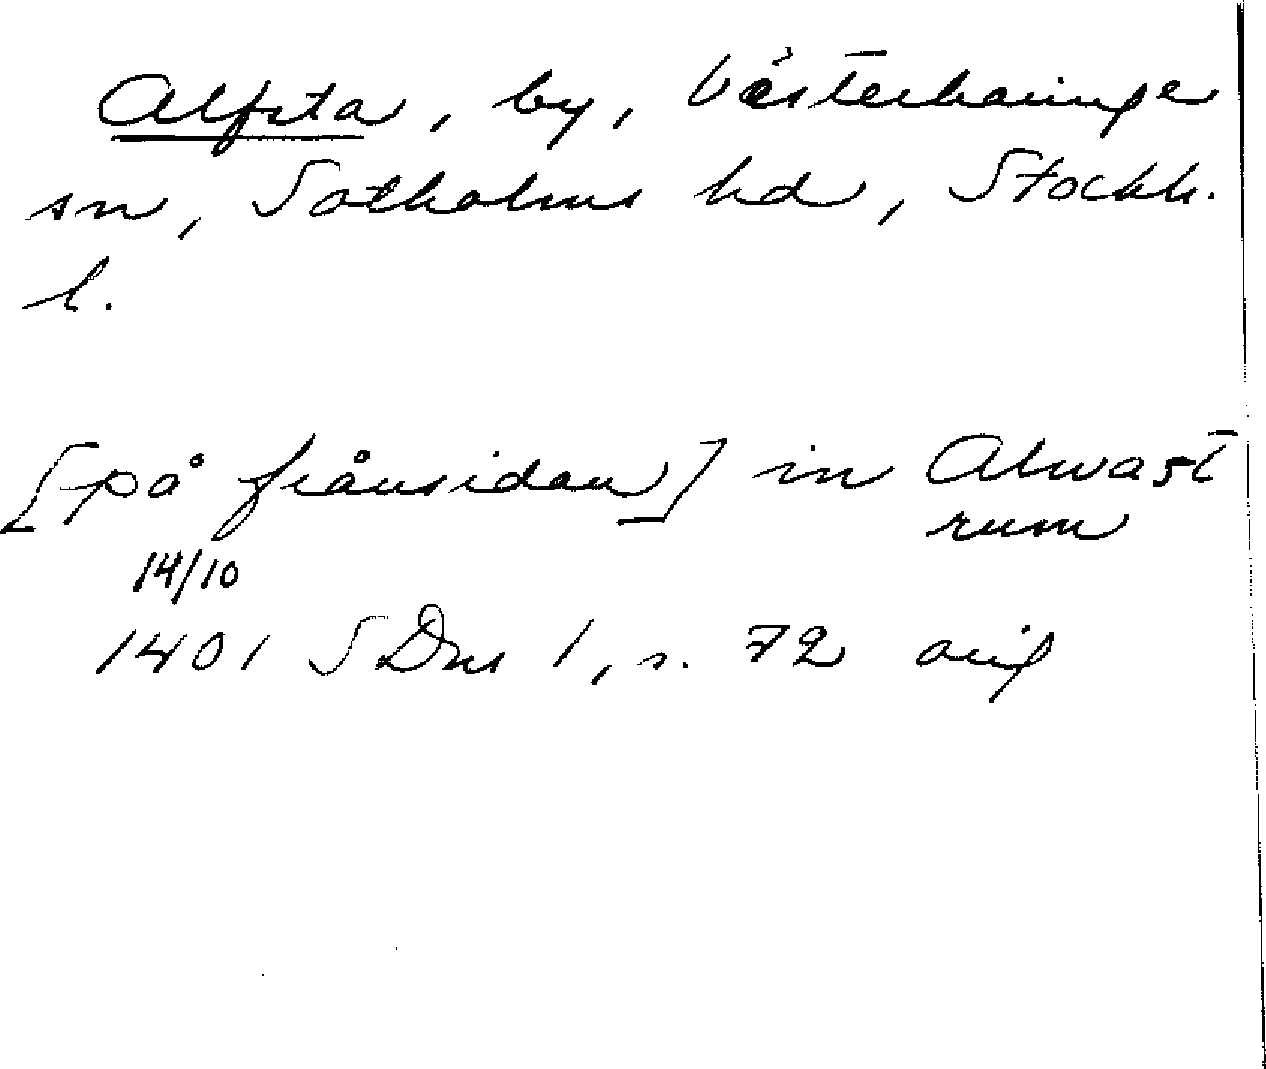 Alfsta, by, Västerhaninge
sn, Sotholms hd, Stockh.
l.
[på frånsidan] in Alwast
rum
14/10
1401 SDns 1, s. 72 orig